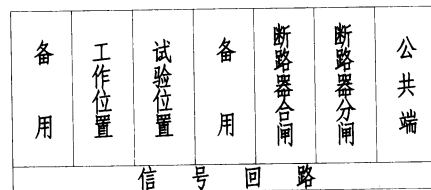 备用
工作位置
试验位置
备用
断路器合闸
断路器分闸
公共端
信号回路